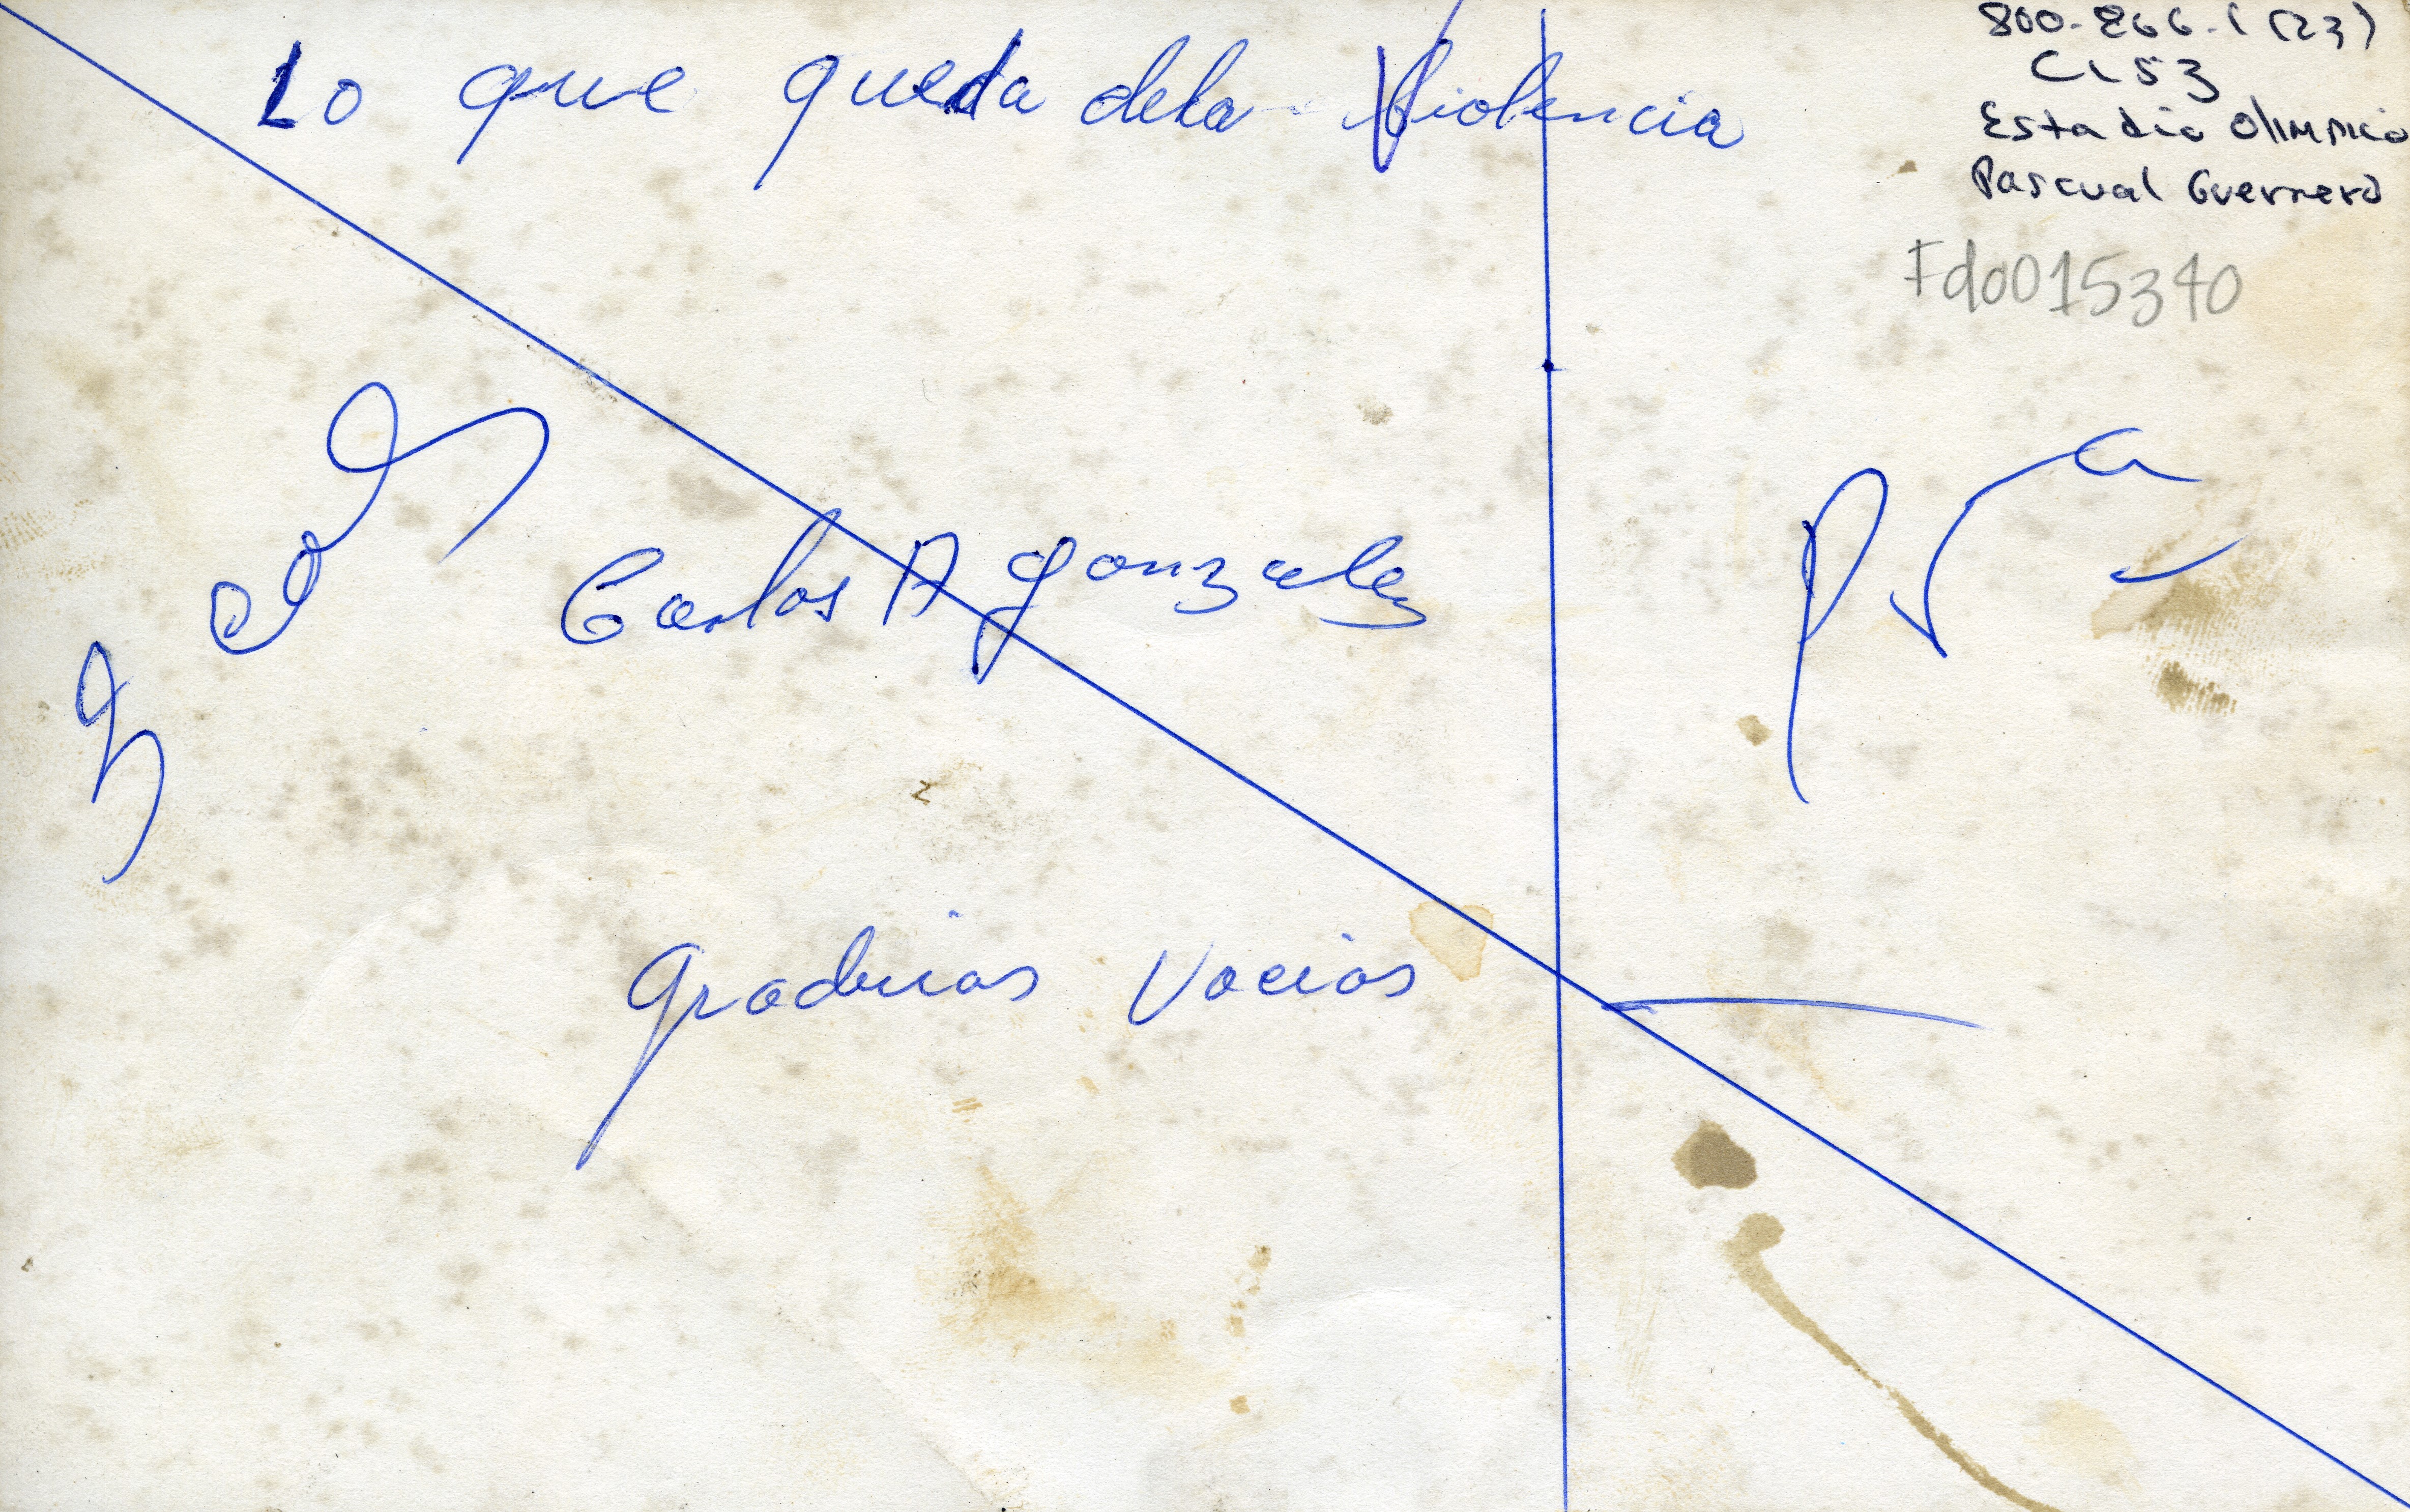 Lo que queda dela Violencia
800-866-1 (23)
C153
Estadio Olimpico
Pascual Guerrero
Fdo015340
Carlos A gonzalez
graderias Vacias